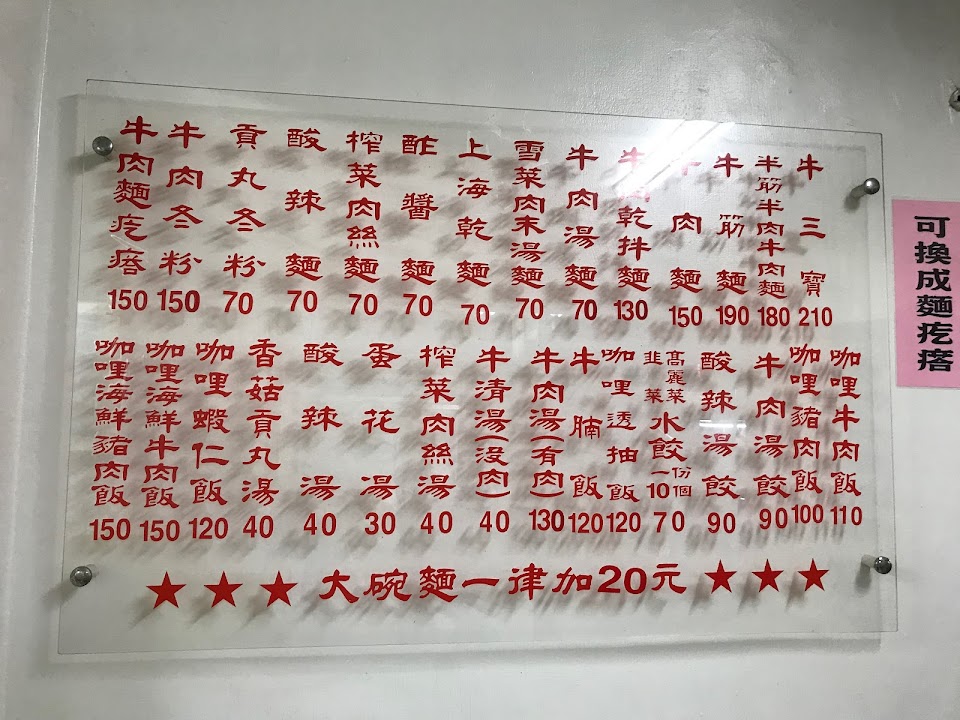 牛三寶 210
半筋半肉牛肉麵 180
牛筋麵 190
牛肉麵 150
牛乾拌麵 130
牛肉湯麵 70
雪菜肉末湯麵 70
上海乾麵 70
酢醬麵 70
榨菜肉絲麵 70
酸辣麵 70
貢丸冬粉 70
牛肉冬粉 150
牛肉麵疙瘩 150
咖哩牛肉飯 110
咖哩豬肉飯 100
牛肉湯餃 90
酸辣湯餃 90
高麗菜韭菜水餃一份10個 70
咖哩透抽飯 120
牛腩飯 120
牛肉湯(有肉) 130
牛清湯(沒肉) 40
榨菜肉絲湯 40
蛋花湯 30
酸辣湯 40
香菇貢丸湯 40
咖哩蝦仁飯 120
咖哩海鮮牛肉飯 150
咖哩海鮮豬肉飯 150
★★★大碗麵一律加20元★★★
可換成麵疙瘩